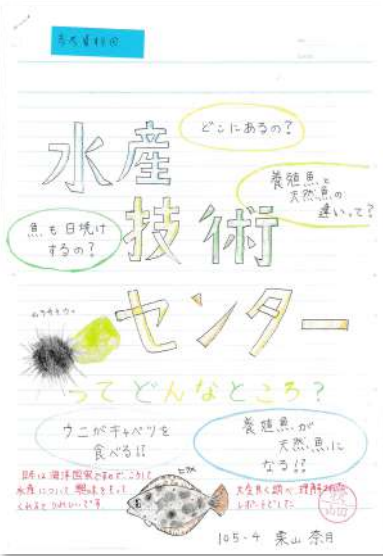 どこにあるの?
水産
養殖魚と
天然魚の
違いって?
魚も日焼け
するの?
技術
センター
ムラサキウニ
ってどんなところ?
ウニがキャベツを
食べる!?
養殖魚が
天然魚に
なる!?
日本は海洋国家ですので、こうして
水産について興味をもって
くれるとうれしいです
ヒラメ
大変良く調べ、理解
105-4 栗山 奈月